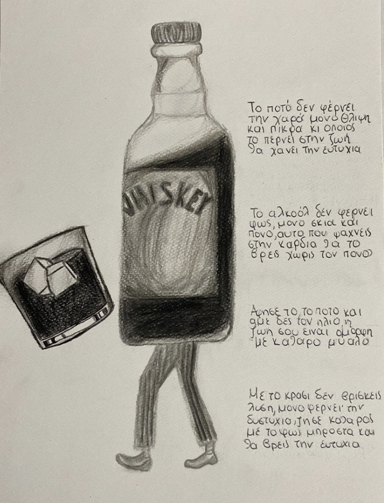 WHISKEY
Το ποτό δεν φέρνει
την χαρά μονο θλιψη
και πικρα κι οποιος
το περνει στην ζωή
θα χανει την ευτυχια
Το αλκοόλ δεν φερνει
φως, μονο σκια και
πονο, αυτο που ψαχνεις
στην καρδια θα το
βρεις χωρις τον πονο
Αφησε το, το ποτο και
δες τον ηλιο, η
ζωη σου ειναι ομορφη
με καθαρο μυαλο
Με το κρασι δεν βρισκεις
λυση, μονο φερνει την
δυστυχια, ζησε καθαρος
με το φως μπροστα και
θα βρεις την ευτυχια